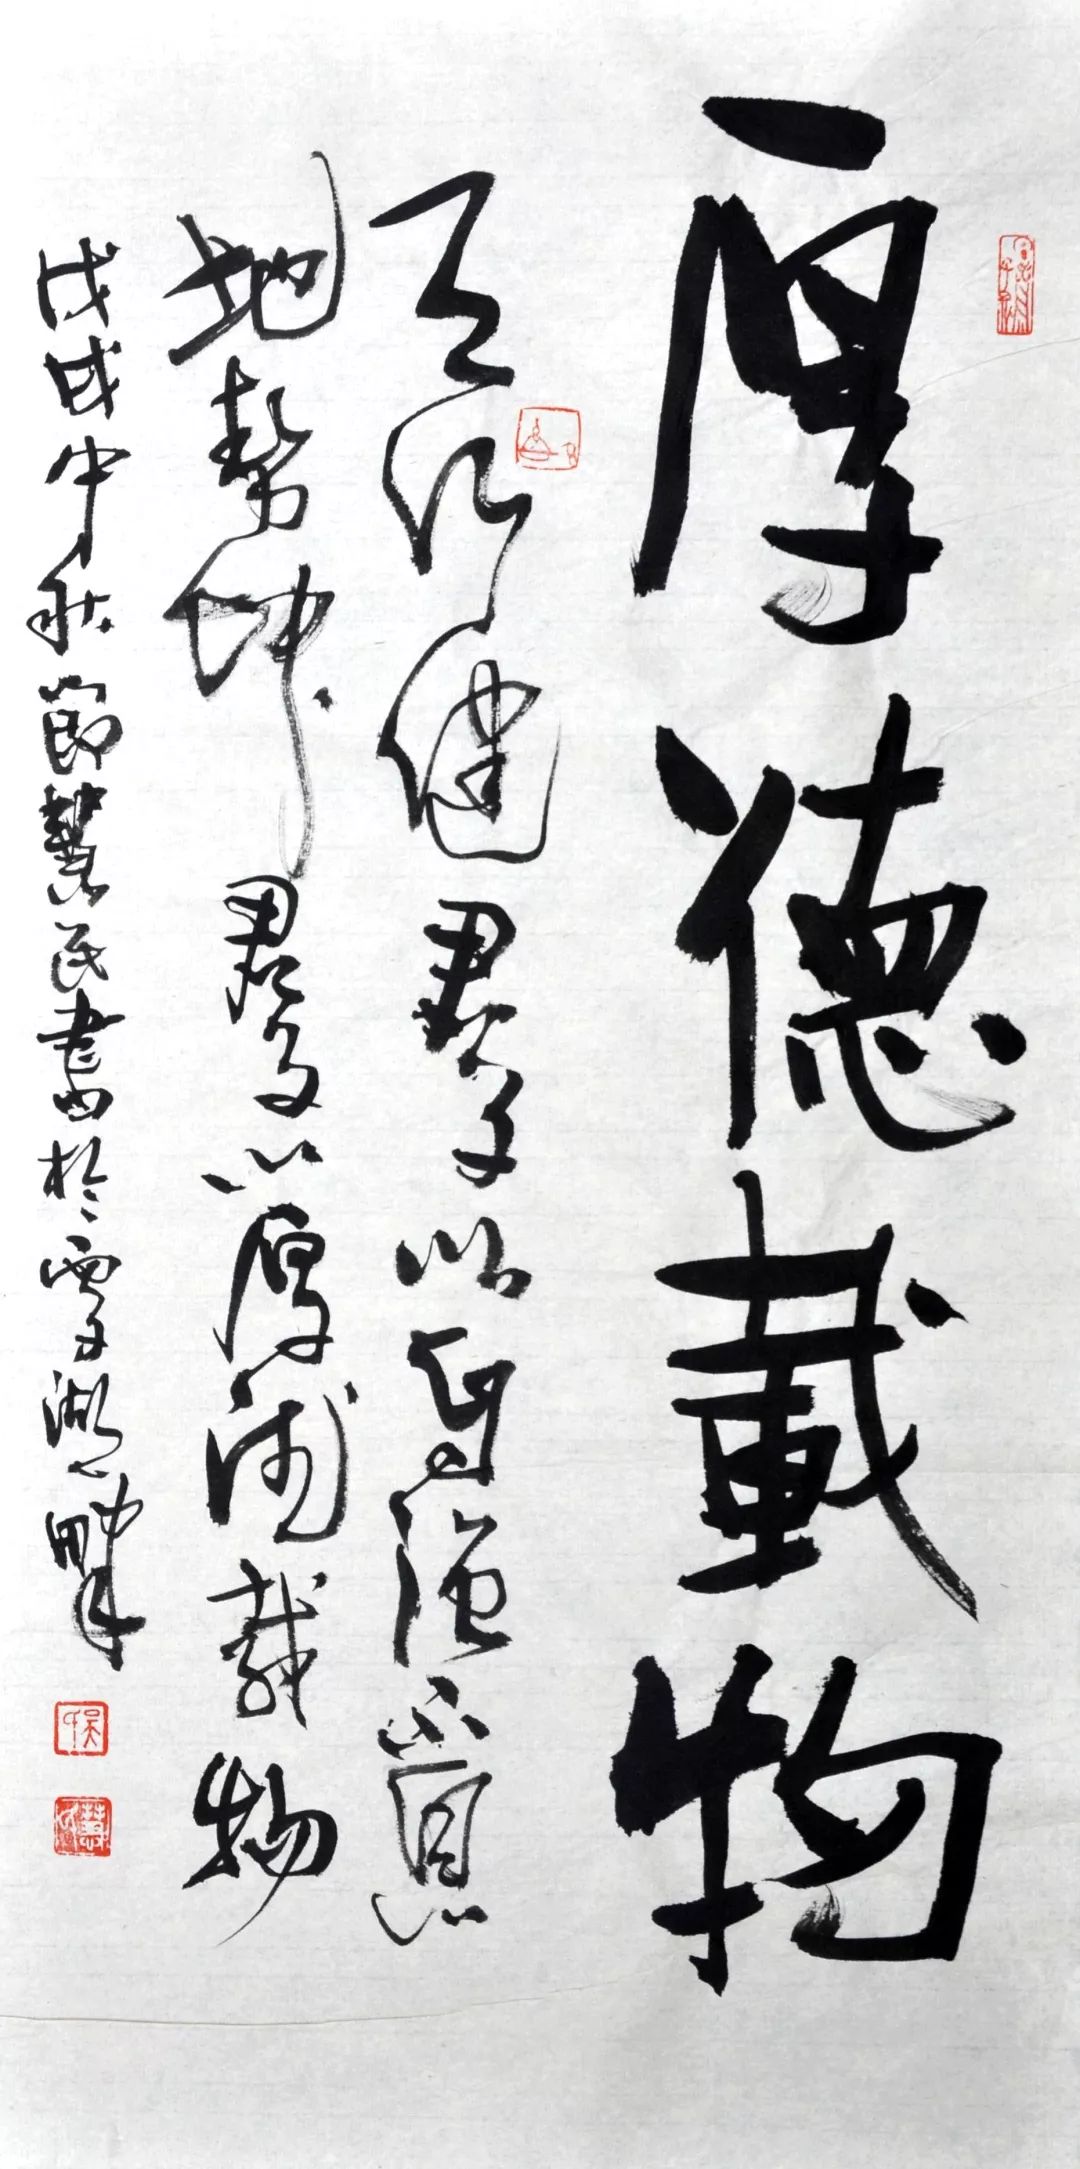 厚德載物
天行健君子以自強不息
地勢坤君子以厚德載物
戊戌中秋節慧民書於湖畔